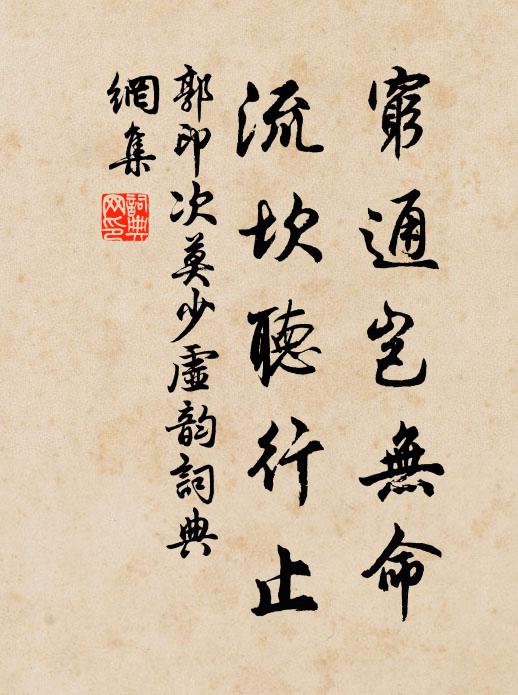 窮通豈無命
流坎聽行止
郭印次莫少虛韵詞典
網集
詞典网印